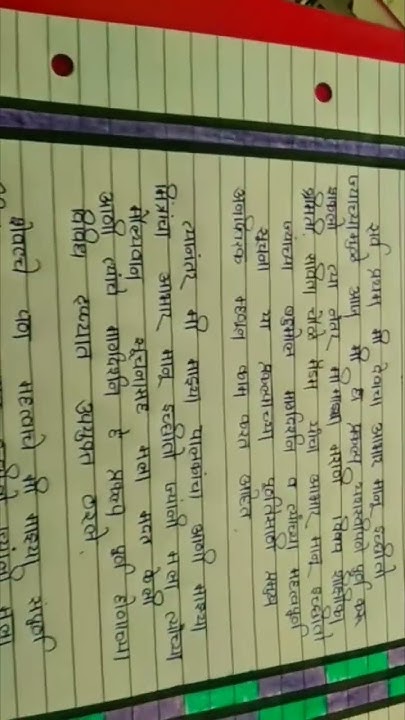 सर्व प्रथम मी देवाचा आभार मानू इच्छीतो
ज्याच्यामुळे आज मी हा प्रकल्प यशस्वीपणे पूर्ण करू
शकलो त्या नंतर मी माझ्या मराठी विषय शिक्षिका
श्रीमती सविता चोळे मॅडम यांचा आभार मानू इच्छीतो
ज्यांच्या बहुमोल मार्गदर्शन व त्यांच्या महत्वपूर्ण
सूचना या प्रकल्पाच्या पूर्ततेसाठी प्रमुख
महत्वपूर्ण काम करत आहेत
त्यानंतर मी माझ्या पालकांचा आणि माझ्या
मित्रांचा आभार मानू इच्छीतो ज्यांनी मला त्यांच्या
मौल्यवान सूचनांसह मला मदत केली
आणी त्यांचे मार्गदर्शन हे प्रकल्प पूर्ण होण्याच्या
विविध टप्प्यात उपयुक्त ठरले.
शेवटचे पण महत्त्वाचे मी माझ्या संपूर्ण